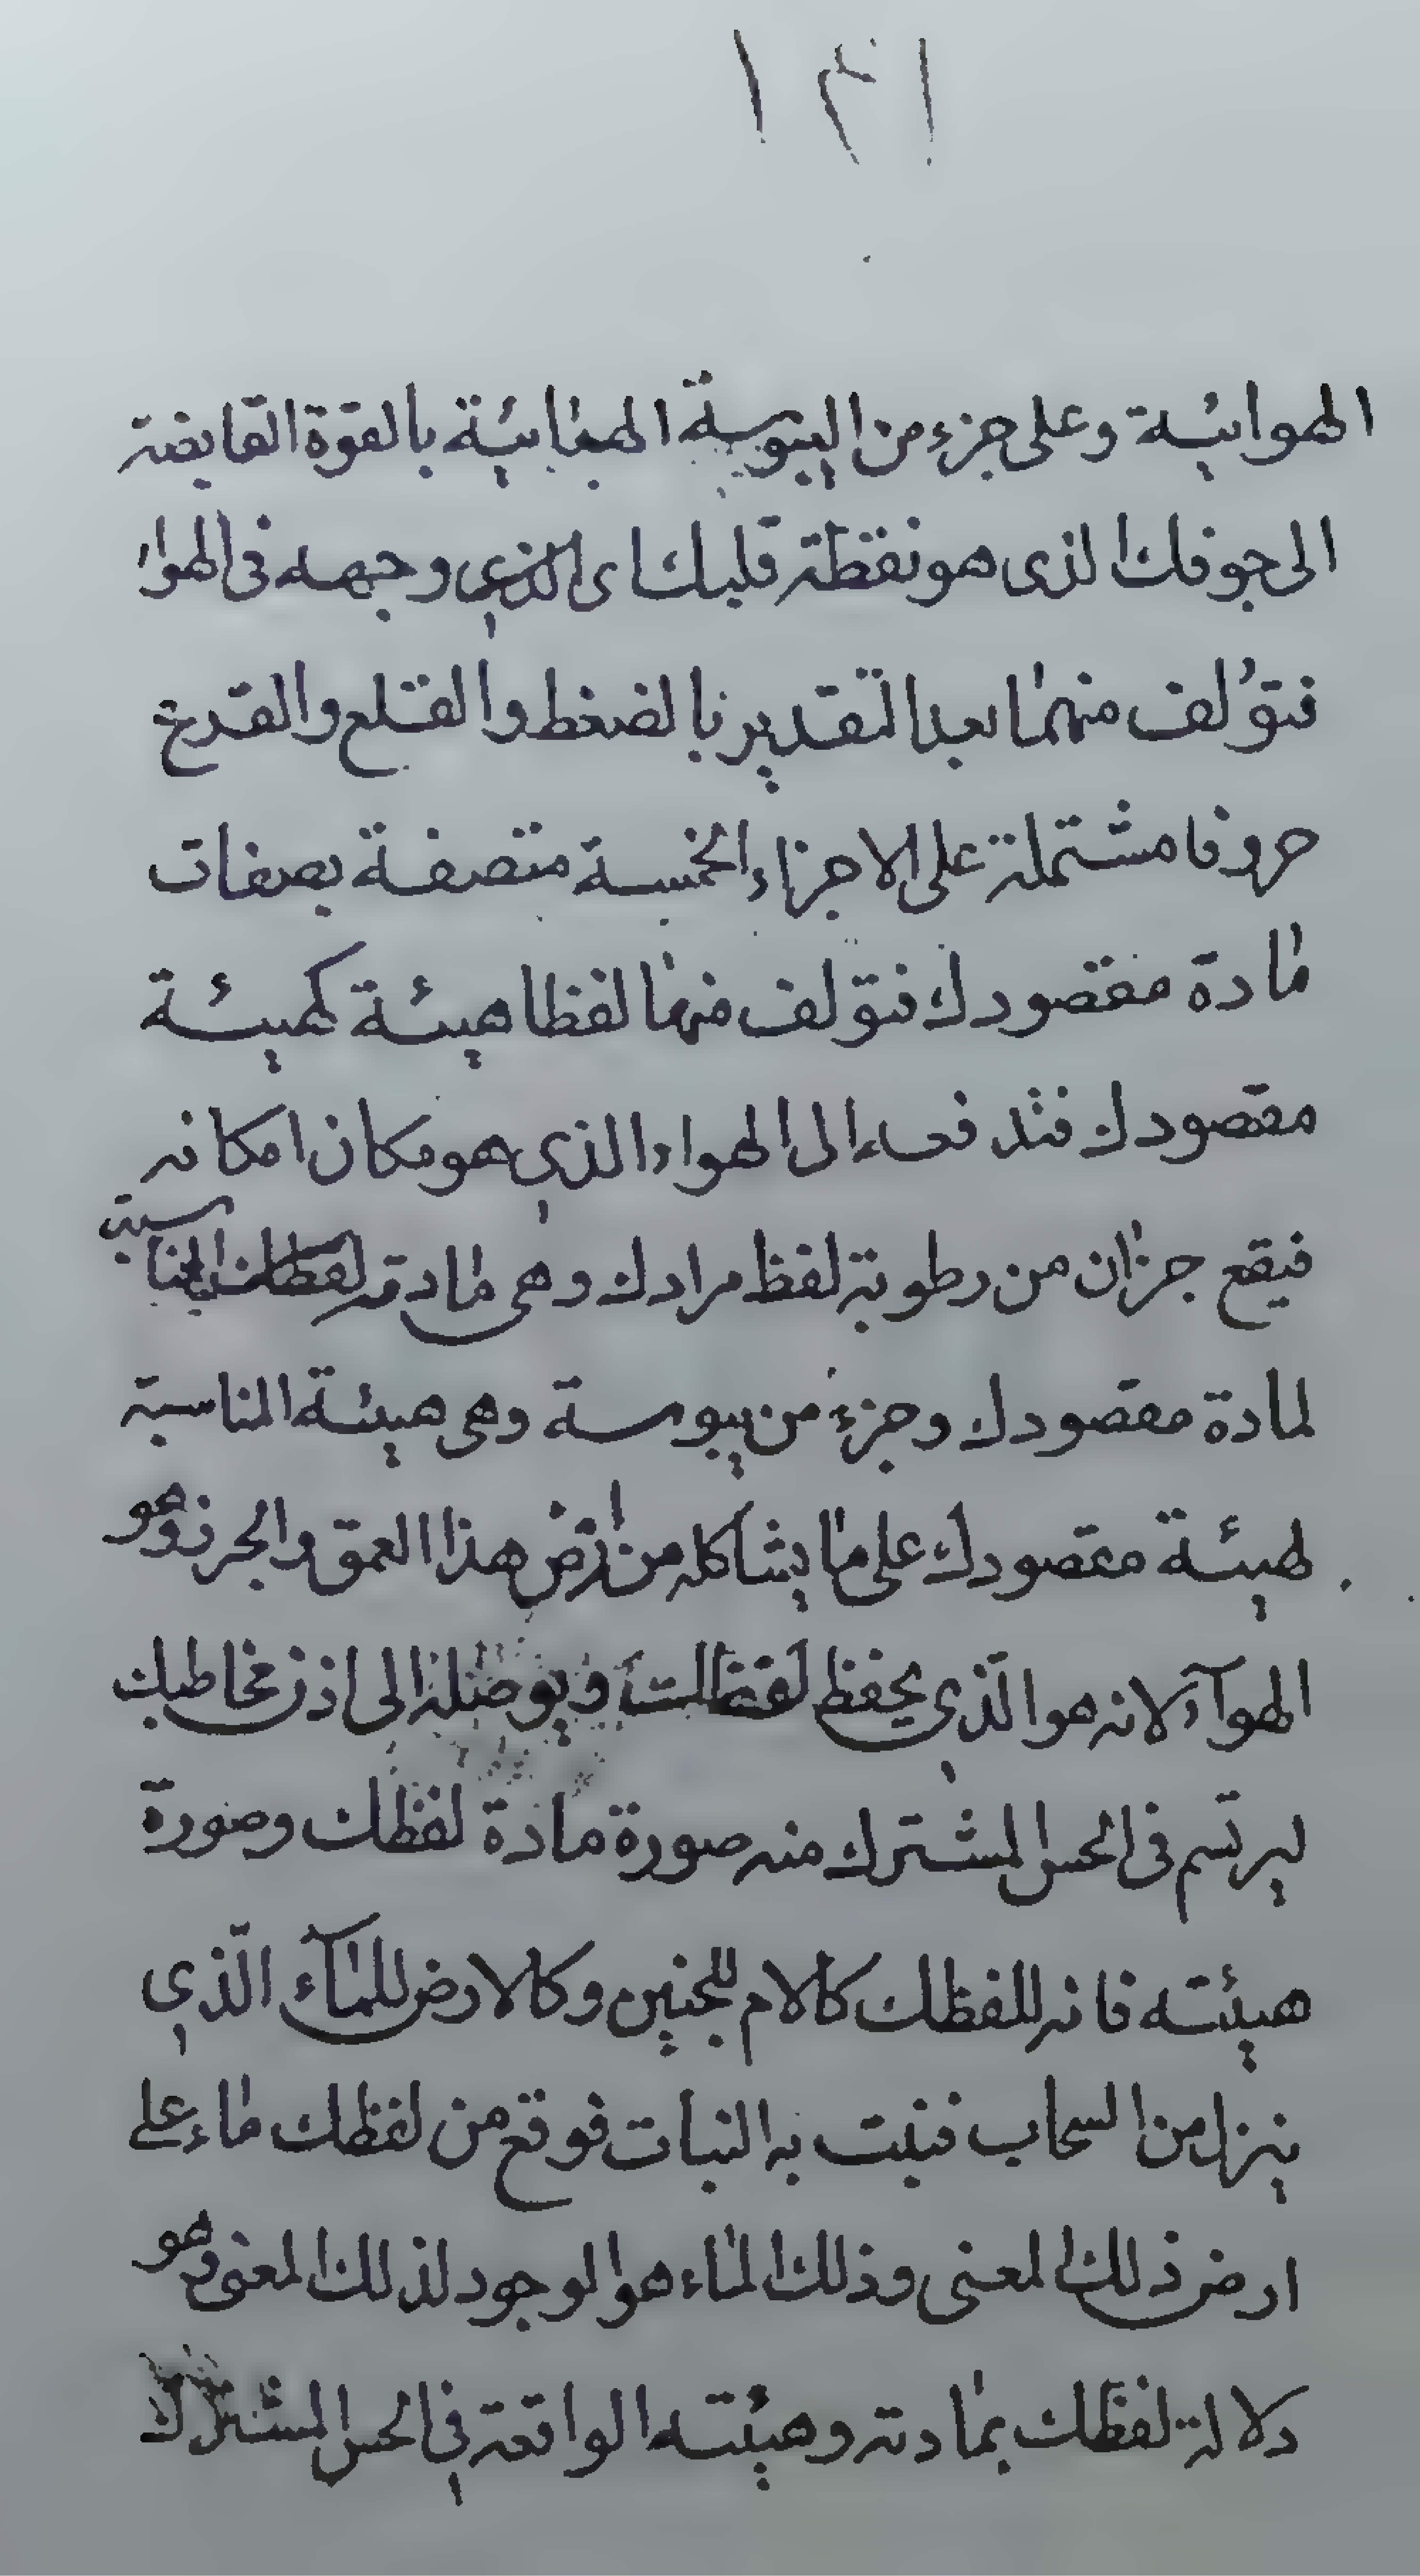 ١٣١
الهوائية وعلى جزء من اليبوسة الهبائية بالقوة القابضة
الى جوفك الذى هو نقطة قلبك اى الذي وجهه فى الهواء
فتؤلف منهما بعد التقدير بالضغط والقلع والقرع
حروفا مشتملة على الاجزاء الخمسة متصفة بصفات
مادة مقصودك فتولف منها لفظا هيئة كهيئة
مقصودك فتدفعه الى الهواء الذي هو مكان امكانه
فيقع جزان من رطوبة لفظ مرادك وهى مادة لفظك المناسبة
لمادة مقصودك وجزء من يبوسة وهى هيئة المناسبة
لهيئة مقصودك على ما يشاكله من ارض هذا العمق والجرز وهو
الهوآء لانه هو الّذي يحفظ لفظك ويوصله الى اذن مخاطبك
ليرتسم فى الحس المشترك منه صورة مادة لفظك وصورة
هيئته فانه للفظك كالام للجنين وكالارض للمآء الّذي
ينزل من السحاب فينبت به النبات فوقع من لفظك ماء على
ارض ذلك المعنى وذلك الماء هو الوجود لذلك المعنى وهو
دلالة لفظك بمادته وهيئته الواقعة فى الحس المشترك